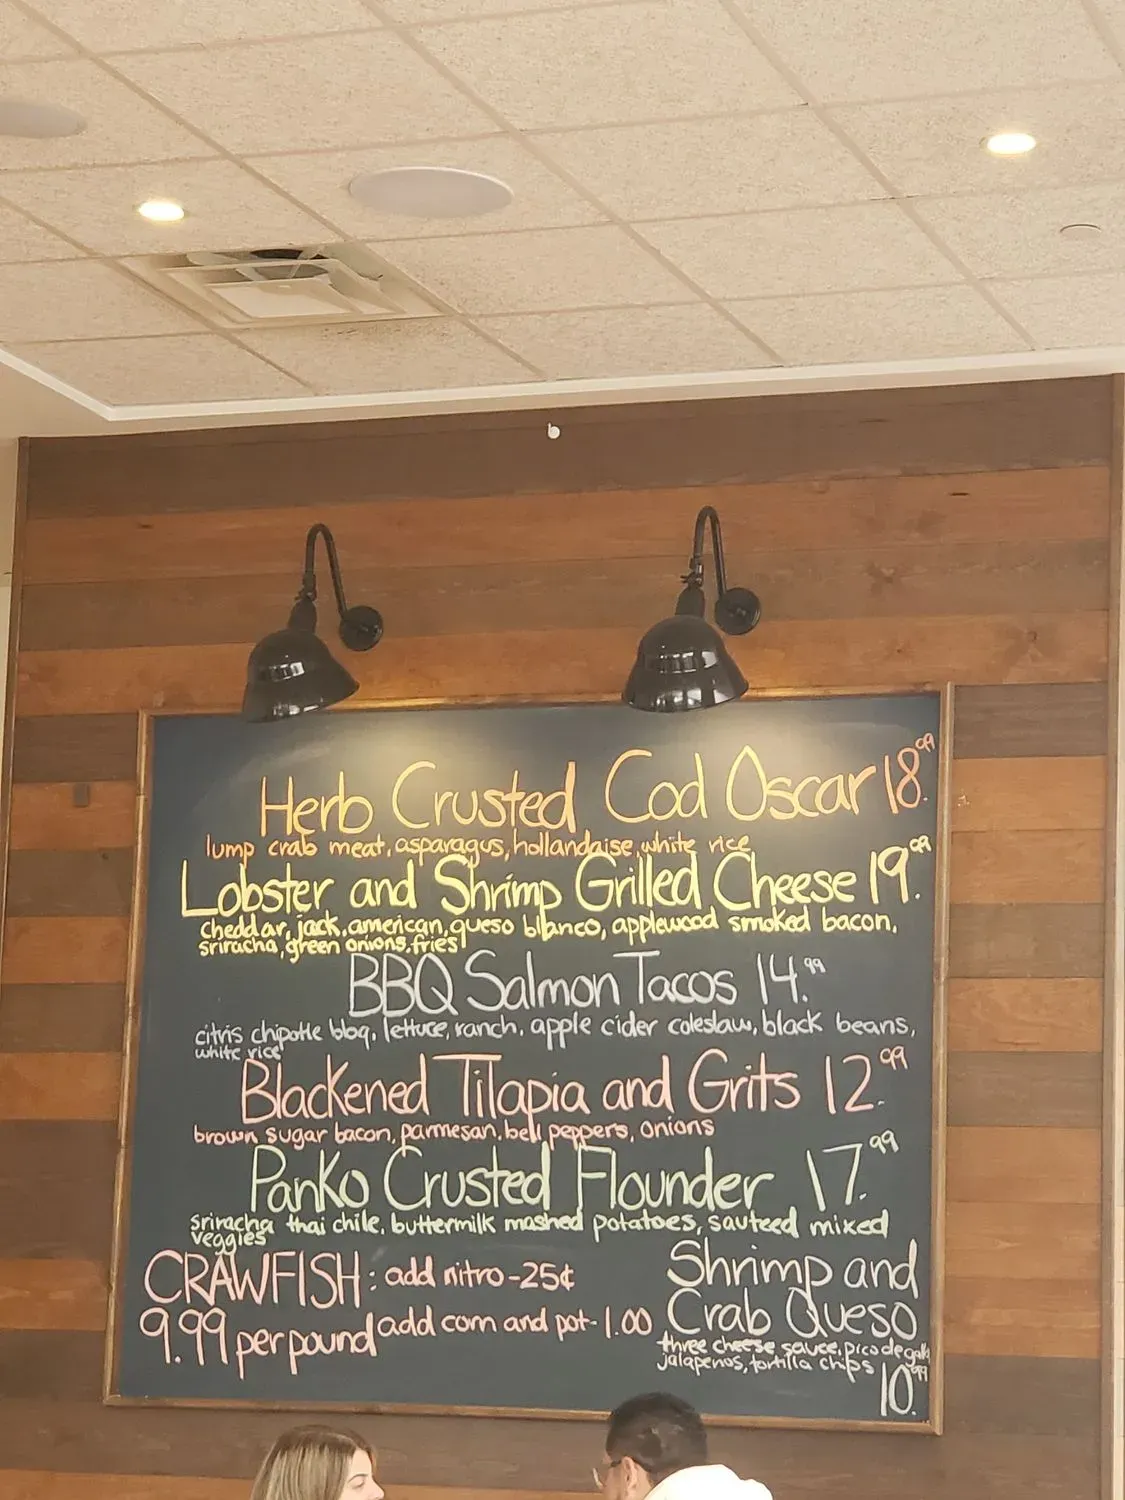 Herb Crusted Cod Oscar 18.99
lump crab meat, asparagus, hollandaise, white rice
Lobster and Shrimp Grilled Cheese 19.99
cheddar, jack, american, queso blanco, applewood smoked bacon,
sriracha, green onions, fries
BBQ Salmon Tacos 14.99
citris chipotle bbq, lettuce, ranch, apple cider coleslaw, black beans,
white rice
Blackened Tilapia and Grits 12.99
brown sugar bacon, parmesan, bell peppers, onions
Panko Crusted Flounder 17.99
sriracha thai chile, buttermilk mashed potatoes, sauteed mixed
veggies
CRAWFISH: add nitro-25¢
9.99 per pound add corn and pot-1.00
Shrimp and
Crab Queso
three cheese sauce, pico de gallo
jalapenos, tortilla chips
10.99